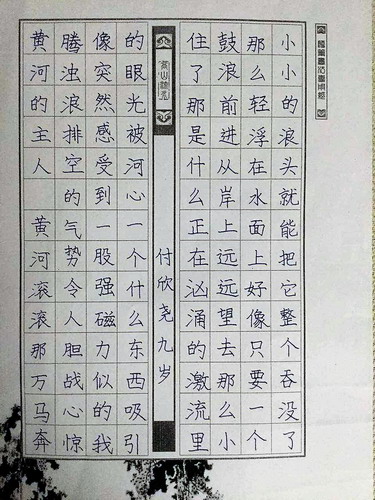 黄河的主人 黄河滚滚那万马奔
腾浊浪排空的气势令人胆战心惊
像突然感受到一股强磁力似的我
的眼光被河心一个什么东西吸引
高山流水
付欣尧 九岁
住了那是什么正在汹涌的激流里
鼓浪前进从岸上远远望去那么小
那么轻浮在水面上好像只要一个
小小的浪头就能把它整个吞没了